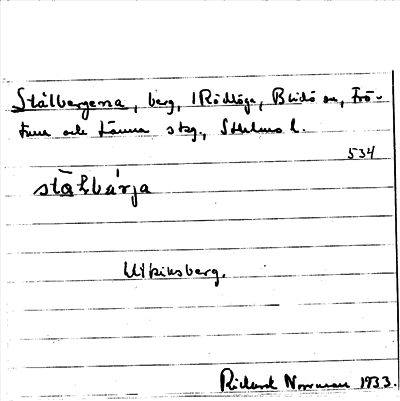 Stålbergena, berg, Rödlöga, Blidö sn, Frö-
tuna och Länna skg., Sthlms l.
534
stålbärja
Utkiksberg.
Rickard Norrman 1933.